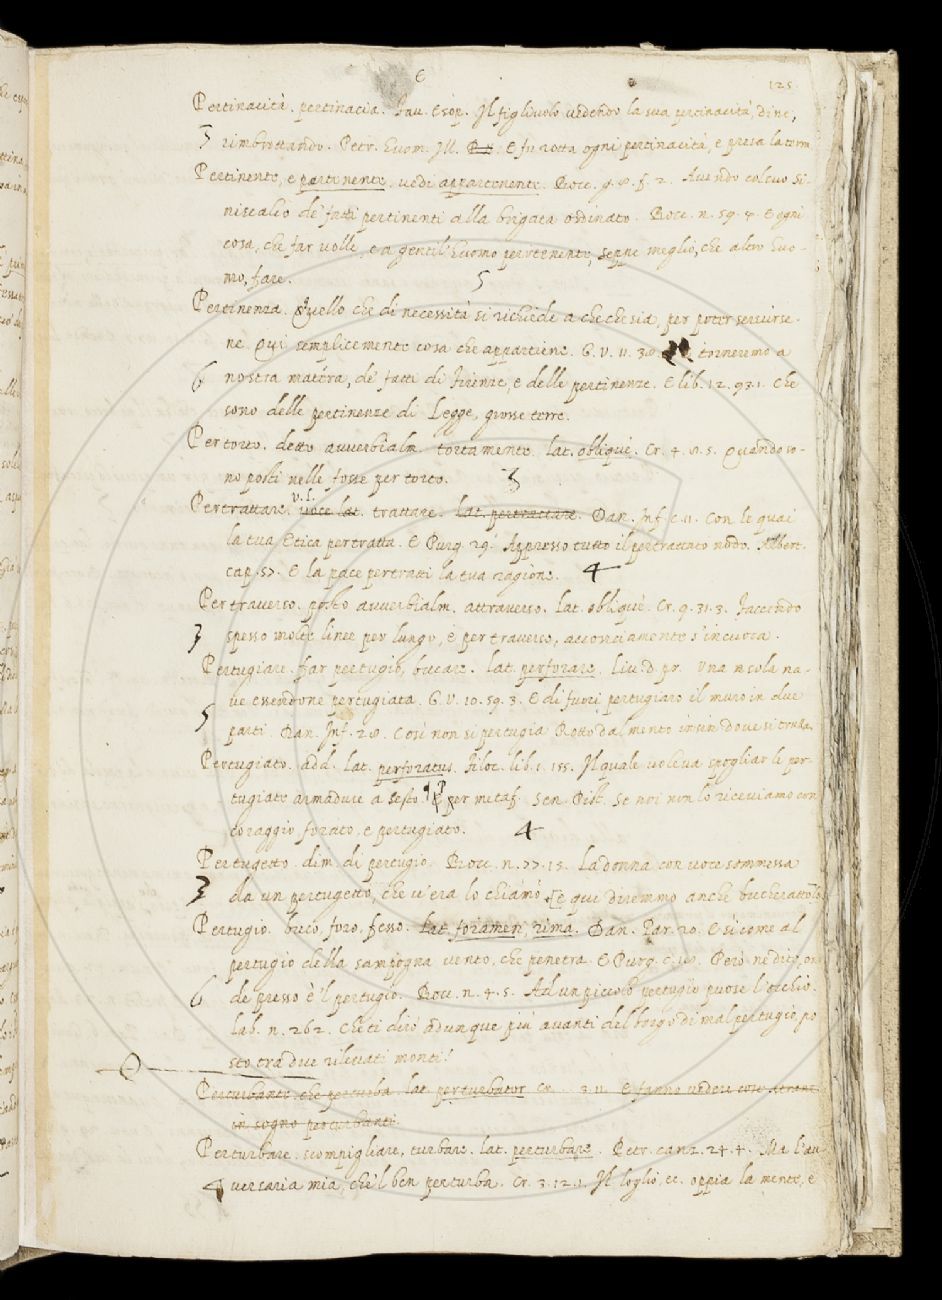 E
125
Pertinacità. pertinacia. Fav. Esop. Il figlivolo vedendo la sua pertinacità, dice,
5 rimbrottando. Petr. Huom. Ill. E fu rotta ogni pertinacità, e presa la terra
Pertinente, e partenente. vedi appartenente. Bocc. g. f. 2. Avendo col suo Si-
niscalco de' fatti pertinenti alla brigata ordinato. Bocc. n. 59. 4. E ogni
cosa, che far volle, e a gentil'huomo pertenente, seppe meglio, che altro huo-
mo, fare. 5
Pertinenza. Quello che di necessità si richiede a che che sia, per poter servirse-
ne. Qui semplicemente cosa che appartiene. G. V. 11. 30. torneremo a
6 nostra matera, de' fatti di Firenze, e delle pertinenze. E lib. 12. 93. 1. Che
sono delle pertinenze di Legge, grosse terre.
Per torto. detto avverbialm. tortamente. lat. obliquè. Cr. 4. 5. Quando so-
no posti nelle fosse per torto. 3
Pertrattare. v. l. voce lat. trattare. lat. pertractare. Dan. Inf. c. 11. Con le quai
la tua Etica pertratta. E Purg. 29. Appresso tutto il pertrattato nodo. Albert.
cap. 57. E la pace pertratti la tua ragione. 4
Per traverso. posto avverbialm. attraverso. lat. obliquè. Cr. 9. 31. 3. Facciendo
3 spesso molte linee per lungo, e per traverso, acconciamente s'incuoca.
Pertugiare. far pertugio, bucare. lat. perforare. Liv. d. pr. Una sola na-
ve essendone pertugiata. G. V. 10. 59. 3. E di fuori pertugiaro il muro in due
5 parti. Dan. Inf. 28. Così non si pertugia Rotto dal mento insin dove si trulla.
Pertugiato. add. lat. perforatus. Filoc. lib. 1. 155. Il quale voleva spogliar le per-
tugiate armadure a Sesto. ¶ E per metaf. Sen. Pist. Se noi non lo riceviamo con
coraggio forato, e pertugiato. 4
Pertugetto. dim. di pertugio. Bocc. n. 77. 15. La donna con voce sommessa
3 da un pertugetto, che v'era lo chiamò [e qui diremmo anche bucherattolo
Pertugio. buco, foro, fesso. lat. foramen, rima. Dan. Par. 20. E sì come al
pertugio della sampogna vento, che penetra. E Purg. c. 18. Però ne dite, ond
6 de presso è 'l pertugio. Bocc. n. 4. 5. Ad un piccolo pertugio puose l'occhio.
lab. n. 262. Che ti dirò adunque più avanti del borgo di mal pertugio, po
sto tra due rilevati monti!
Perturbante. che perturba. lat. perturbator Cr. 3. 11. E fanno vedere cose
in sogno perturbanti
Perturbare. scompigliare, turbare. lat. perturbare. Petr. canz. 24. 4. Ma l'av-
4 versaria mia, che 'l ben perturba. Cr. 3. 12. 1. Il loglio, ec. oppia la mente, e